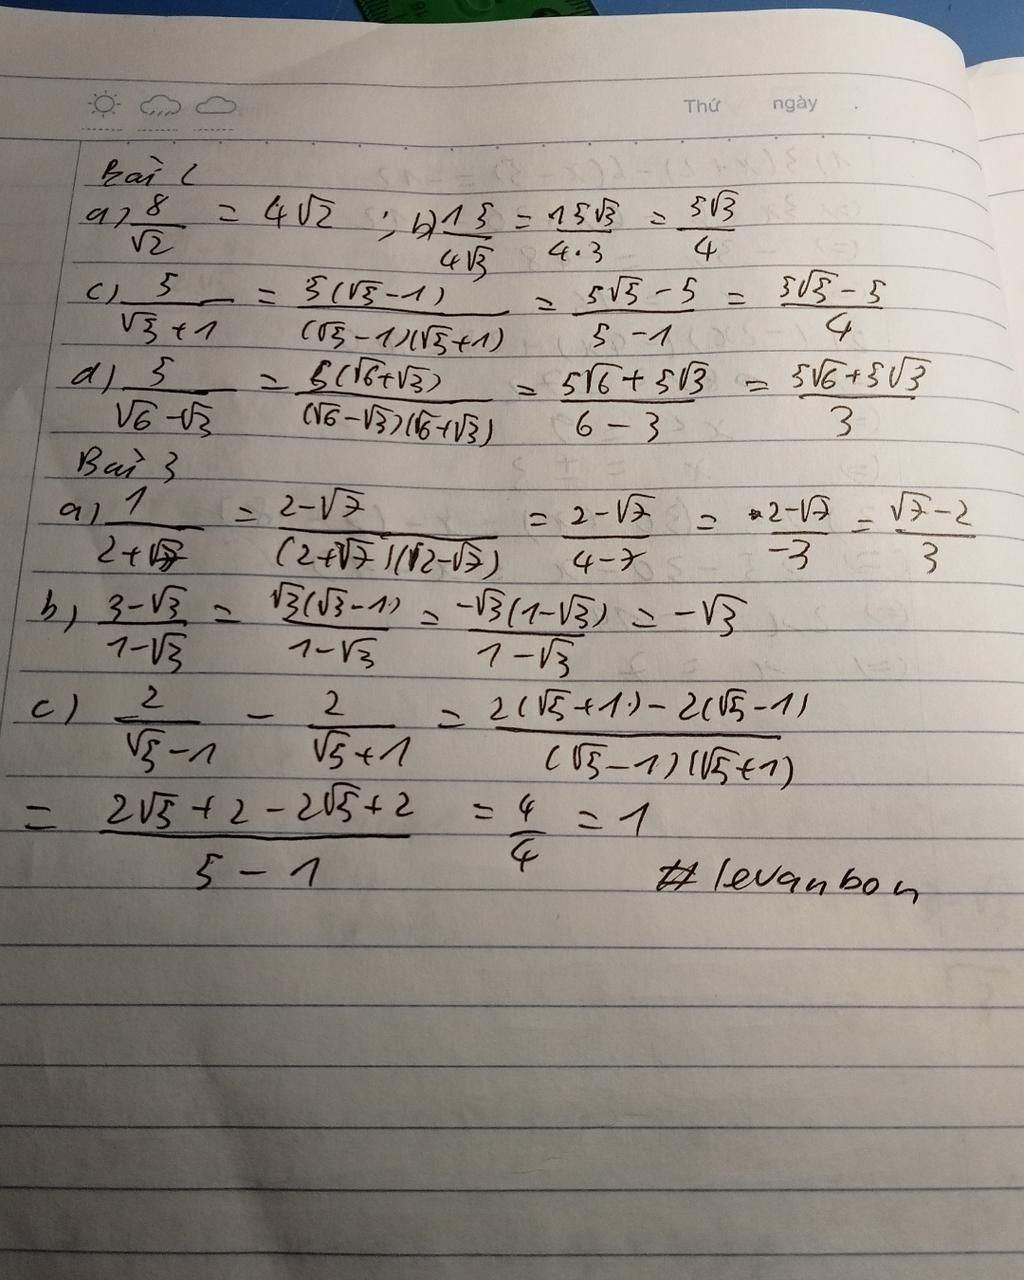 Thứ ngày .
Bài 2
a) 8/√2 = 4√2 ; b) 15/4√3 = 15√3/4·3 = 5√3/4
c) 5/√5+1 = 5(√5-1)/(√5-1)(√5+1) = 5√5-5/5-1 = 5√5-5/4
d) 5/√6-√3 = 5(√6+√3)/(√6-√3)(√6+√3) = 5√6+5√3/6-3 = 5√6+5√3/3
Bài 3
a) 1/2+√7 = 2-√7/(2+√7)(2-√7) = 2-√7/4-7 = 2-√7/-3 = √7-2/3
b) 3-√3/1-√3 = √3(√3-1)/1-√3 = -√3(1-√3)/1-√3 = -√3
c) 2/√5-1 - 2/√5+1 = 2(√5+1)-2(√5-1)/(√5-1)(√5+1)
= 2√5+2-2√5+2/5-1 = 4/4 = 1
# levanbon